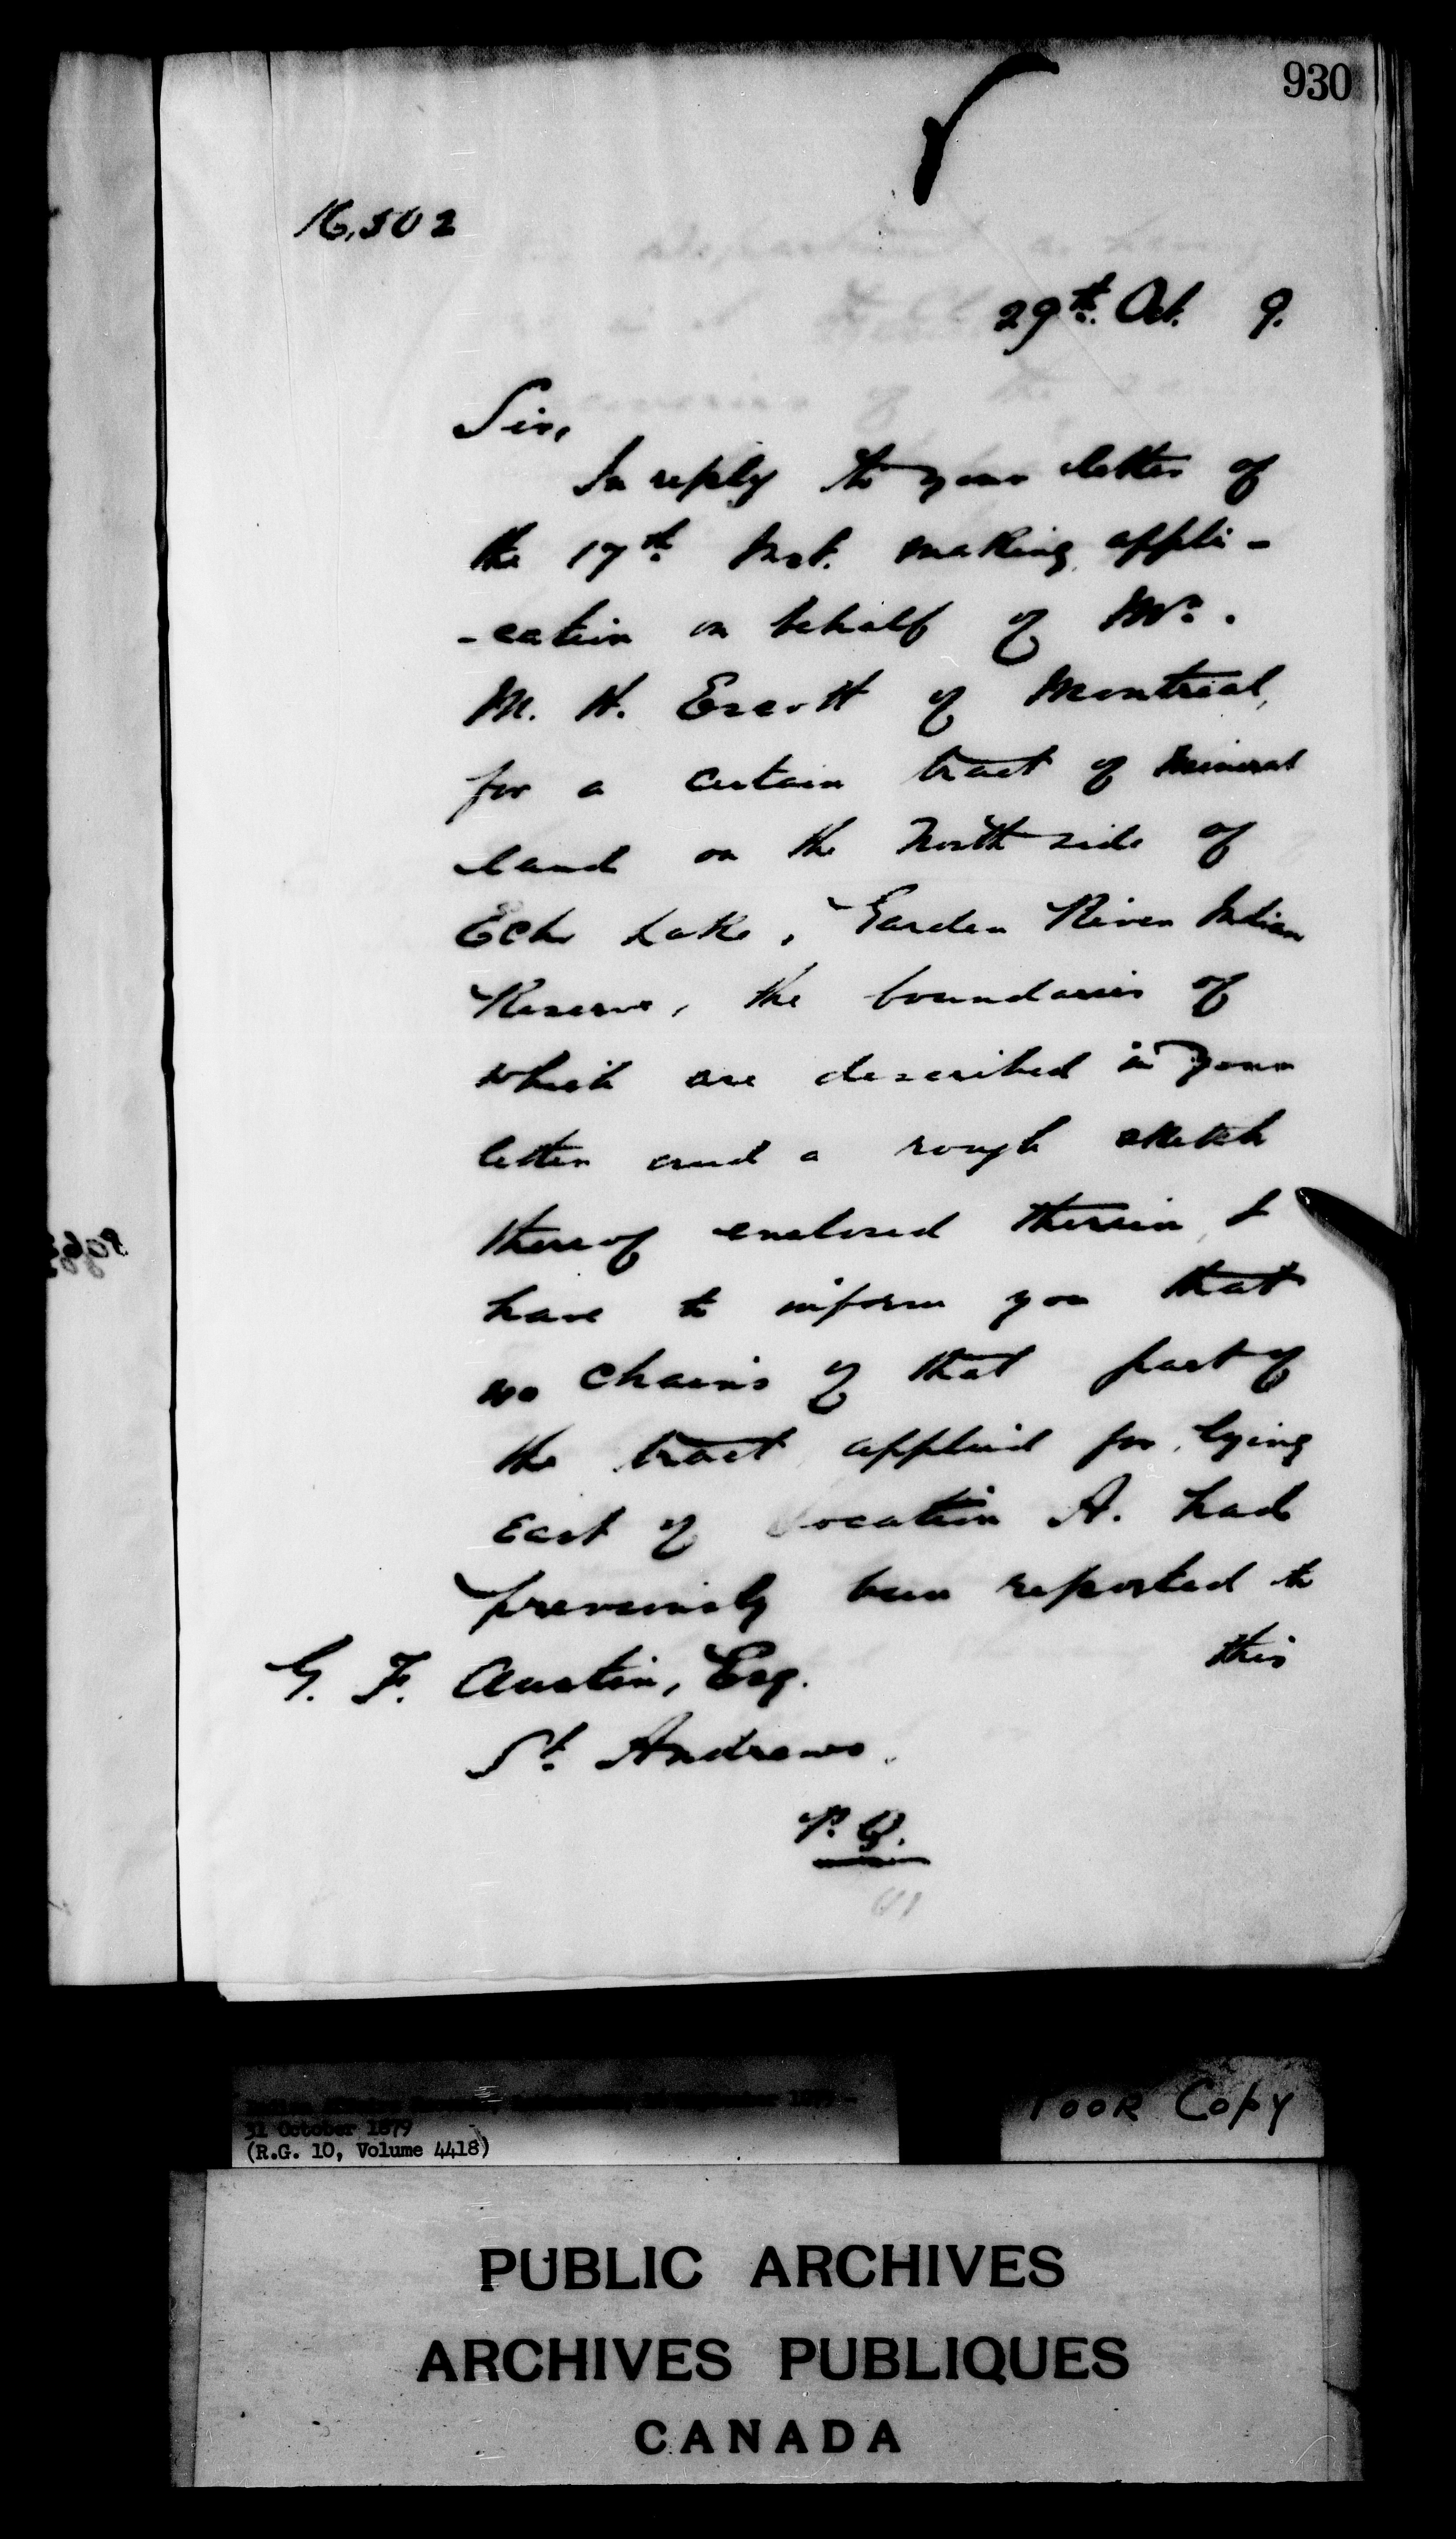 930
16,502
29th. Oct. 9.
Sir,
In reply to your letter of
the 17th Inst. making appli-
-cation on behalf of Mr.
M. H. Escott of Montreal,
for a certain tract of mineral
land on the North side of
Echo Lake, Garden River Indian
Reserve, the boundaries of
which are described in your
letter and a rough sketch
thereof enclosed therein, I
have to inform you that
no chains of that part of
the tract applied for, lying
east of Location A. had
previously been reported to
this
G. F. Austin, Esq.
St. Andrews.
P. Q.
31 October 1879
(R.G. 10, Volume 4418)
Poor Copy
PUBLIC ARCHIVES
ARCHIVES PUBLIQUES
CANADA